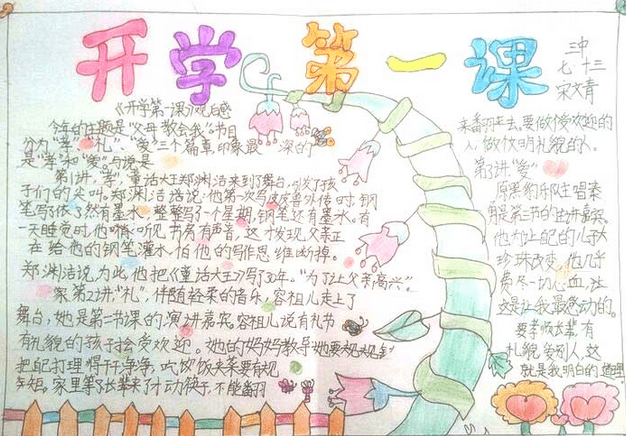 开学第一课
三中
七 十三
宋文青
《开学第一课》观后感
今年的主题是“父母教会我”节目
分为“孝”、“礼”、“爱”三个篇章,印象最深的
是“孝”和“爱”
第1讲,“孝”,童话大王郑渊洁来到了舞台,引发了孩
子们的尖叫。郑渊洁说:他第一次写皮皮鲁外传时,钢
笔写了依了然有墨水,整整写了一个星期,钢笔还有墨水。有
一天睡觉时,他听见书房有声音,这才发现父亲正
在给他的钢笔灌水,怕他的写作思维断掉。
郑渊洁说,为此,他把《童话大王》写了30年。“为了让父亲高兴”。
第2讲,“礼”,伴随轻柔的音乐,容祖儿走上了
舞台,她是第二节课的演讲嘉宾。容祖儿说有礼节
有礼貌的孩子会受欢迎。她的妈妈教导她要规规
把自己打理得干干净净,吃饭夹菜要有规
矩,家里等长辈来了才动筷子,不能翻
来翻去,要做个受欢迎的
人,做个文明礼貌的人。
第3讲,“爱”
原黑豹乐队主唱秦
勇是第三节的主讲嘉宾。
他为让自己的儿子大
珍珠改变,他几乎
费尽一切心血,这
这是让我最感动的。
要孝敬长辈,有
礼貌,爱别人,这
就是我明白的道理